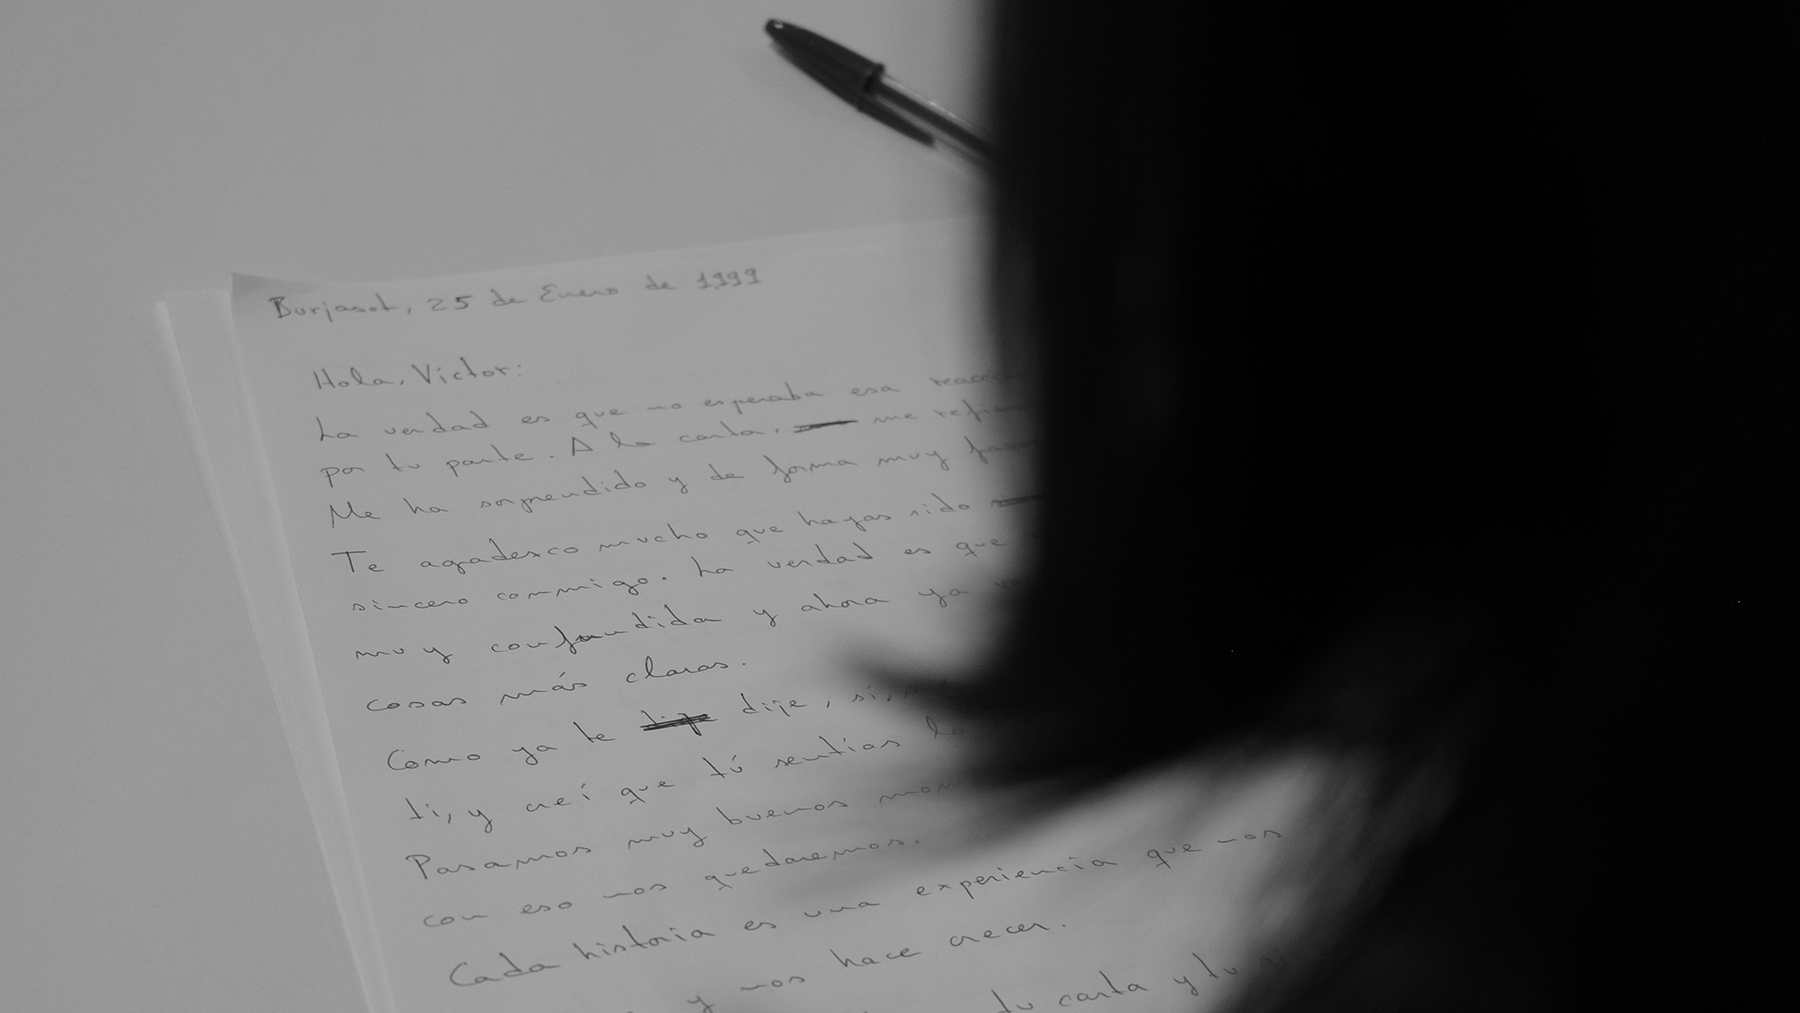 Burjasot, 25 de Enero de 1999
Hola, Víctor:
La verdad es que no esperaba esa
por tu parte. A la carta, me
Me ha sorprendido y de forma muy
Te agadexco mucho que hayas sido
sincero commigo. La verdad es que
muy confundida y ahora ya
cosas más claras.
Como ya te dije, sí,
ti, y creí que tú sentías lo
Pasamos muy buenos
con eso nos quedaremos.
Cada historia es una experiencia que nos
y nos hace crecer.
tu carta y tu